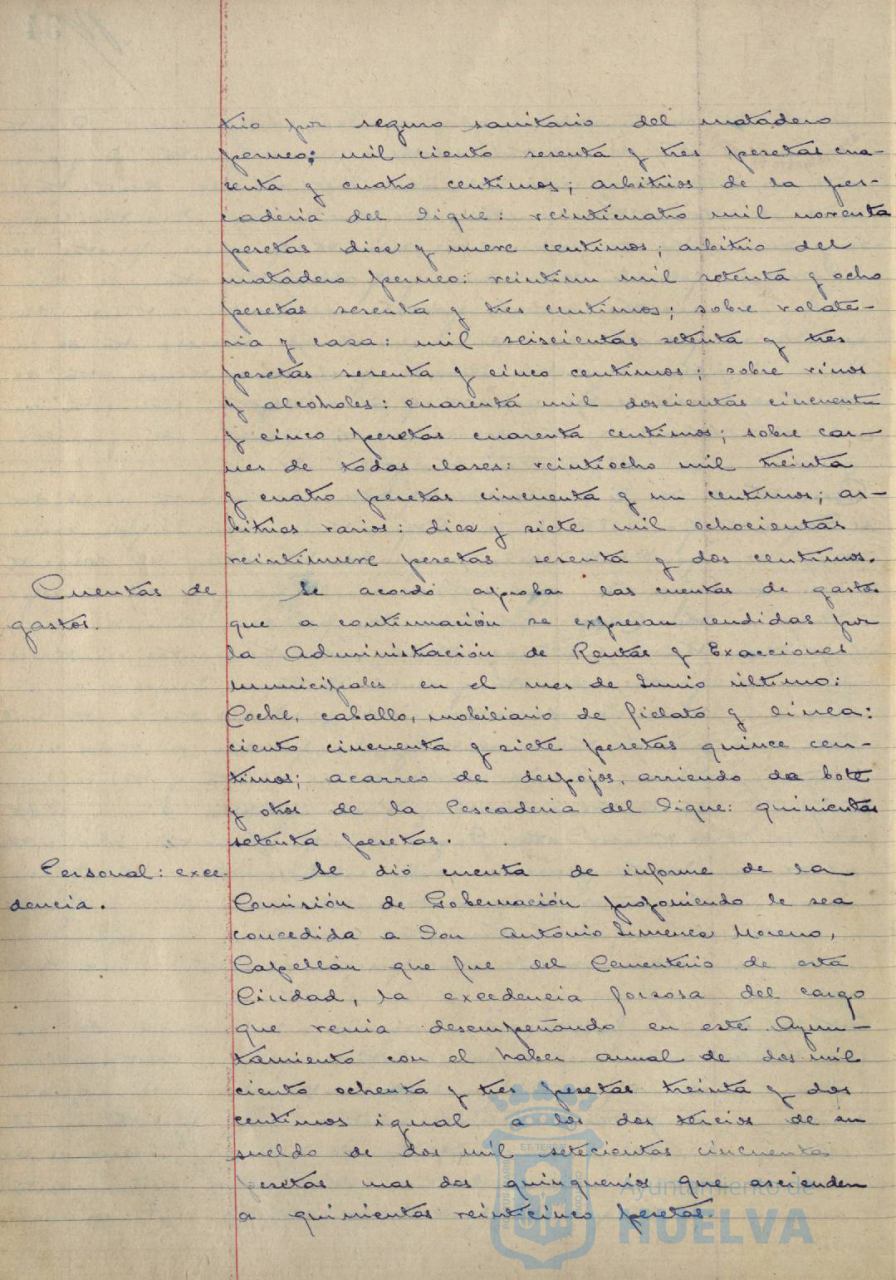 trio por seguro sanitario del matadero
perneo: mil ciento sesenta y tres pesetas cua-
renta y cuatro centimos; arbitrios de la pes-
caderia del Dique: veinticuatro mil noventa
pesetas diez y nueve centimos; arbitrio del
matadero perneo: veintiun mil setenta y ocho
pesetas sesenta y tres centimos; sobre volate-
ria y caza: mil seiscientas setenta y tres
pesetas sesenta y cinco centimos; sobre vinos
y alcoholes: cuarenta mil doscientas cincuenta
y cinco pesetas cuarenta centimos; sobre car-
nes de todas clases: veintiocho mil treinta
y cuatro pesetas cincuenta y un centimos; ar-
bitrios varios: diez y siete mil ochocientas
veintinueve pesetas sesenta y dos centimos.
Cuentas de
gastos.
Se acordó aprobar las cuentas de gastos
que a continuación se expresan rendidas por
la Administración de Rentas y Exacciones
municipales en el mes de Junio último:
Coche, caballo, mobiliario de fielato y línea:
ciento cincuenta y siete pesetas quince cen-
timos; acarreo de despojos, arriendo de bote
y otros de la Pescaderia del Dique: quinientas
setenta pesetas.
Personal: exce-
dencia.
Se dió cuenta de informe de la
Comisión de Gobernación proponiendo le sea
concedida a Don Antonio Jimenez Moreno,
Capellán que fue del Cementerio de esta
Ciudad, la excedencia forzosa del cargo
que venia desempeñando en este Ayun-
tamiento con el haber anual de dos mil
ciento ochenta y tres pesetas treinta y dos
centimos igual a los dos tercios de su
sueldo de dos mil setecientas cincuenta
pesetas mas dos quinquenios que ascienden
a quinientas veinticinco pesetas.
Ayuntamiento de
HUELVA